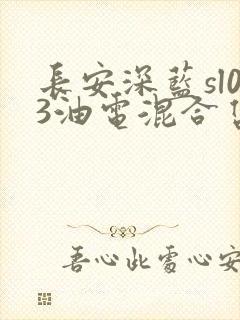 長安深藍sl0
3油電混合
吾心此處心安